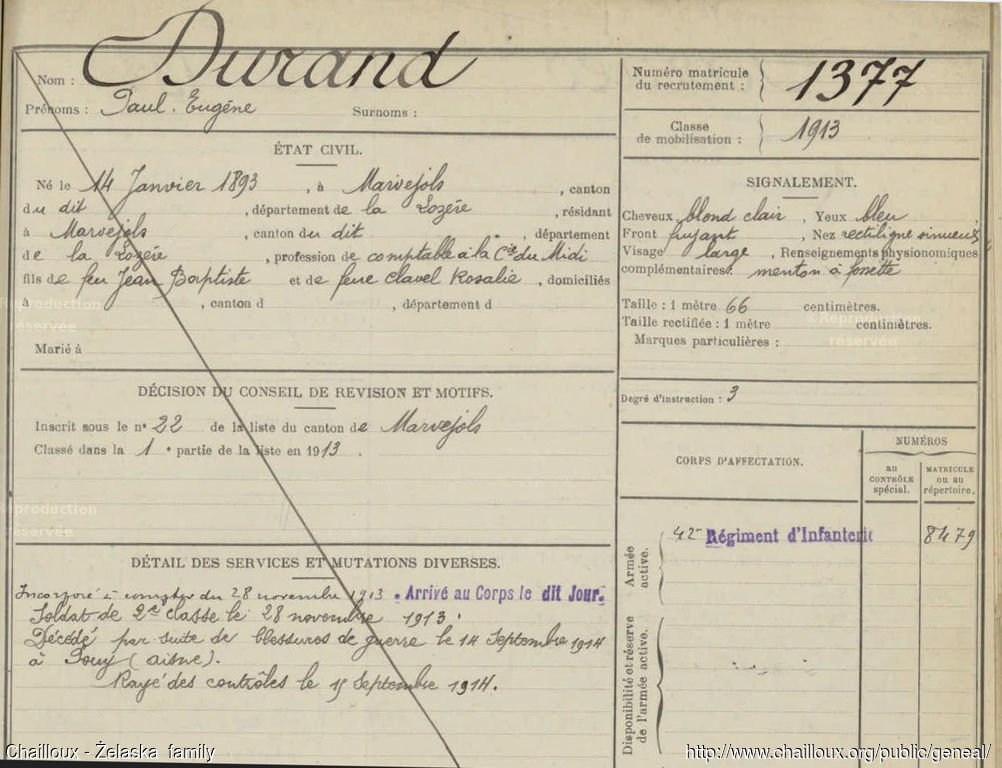 Nom : Durand
Prénoms : Paul. Eugène Surnoms :
Numéro matricule du recrutement : 1377
Classe de mobilisation : 1913
ÉTAT CIVIL.
Né le 14 Janvier 1893, à Marvejols, canton
du dit, département de la Lozère, résidant
à Marvejols, canton du dit, département
de la Lozère, profession de comptable à la Cie du Midi
fils de feu Jean Baptiste et de feue Clavel Rosalie, domiciliés
à , canton d , département d
Marié à
SIGNALEMENT.
Cheveux blond clair, Yeux bleu,
Front fuyant, Nez rectiligne sinueux,
Visage large, Renseignements physionomiques
complémentaires: menton à fossette
Taille : 1 mètre 66 centimètres.
Taille rectifiée : 1 mètre centimètres.
Marques particulières :
Degré d'instruction : 3
DÉCISION DU CONSEIL DE REVISION ET MOTIFS.
Inscrit sous le n° 22 de la liste du canton de Marvejols
Classé dans la 1e partie de la liste en 1913.
CORPS D'AFFECTATION.
NUMÉROS
au CONTRÔLE spécial.
MATRICULE ou au répertoire.
Armée active.
42e Régiment d'Infanterie 8479
Disponibilité et réserve de l'armée active.
DÉTAIL DES SERVICES ET MUTATIONS DIVERSES.
Incorporé à compter du 28 novembre 1913. Arrivé au Corps le dit Jour.
Soldat de 2e classe le 28 novembre 1913.
Décédé par suite de blessures de guerre le 14 Septembre 1914
à Pouy (aisne).
Rayé des contrôles le 15 Septembre 1914.
Reproduction réservée
©Reproduction réservée
Reproduction réservée
Chailloux - Żelaska family
http://www.chailloux.org/public/geneal/